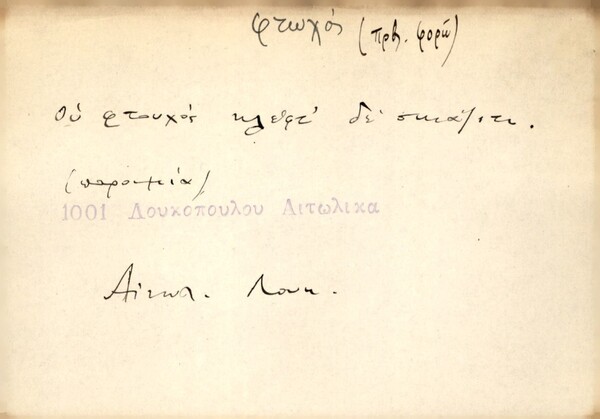 φτωχός (πρβ. φορῶ)
Οὑ φτουχός κλέφτ' δέ σκιάζιτι.
(παροιμία)
1001 Λουκοπουλου Αιτωλικα
Αἰτωλ. Λουκ.